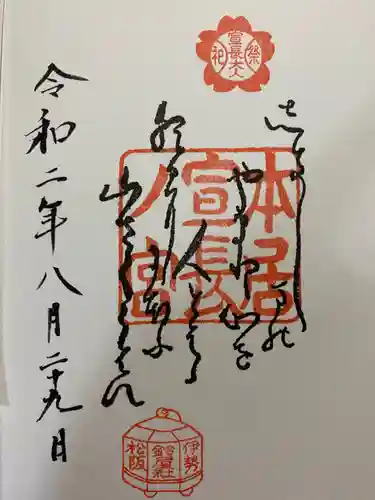 祭
宣長大人
祀
本居
宣長
ノ宮
しきしまの
やまと心を
人とはゝ
朝日ににほふ
山さくらはな
令和二年八月二十九日
伊勢
鈴屋社
松阪